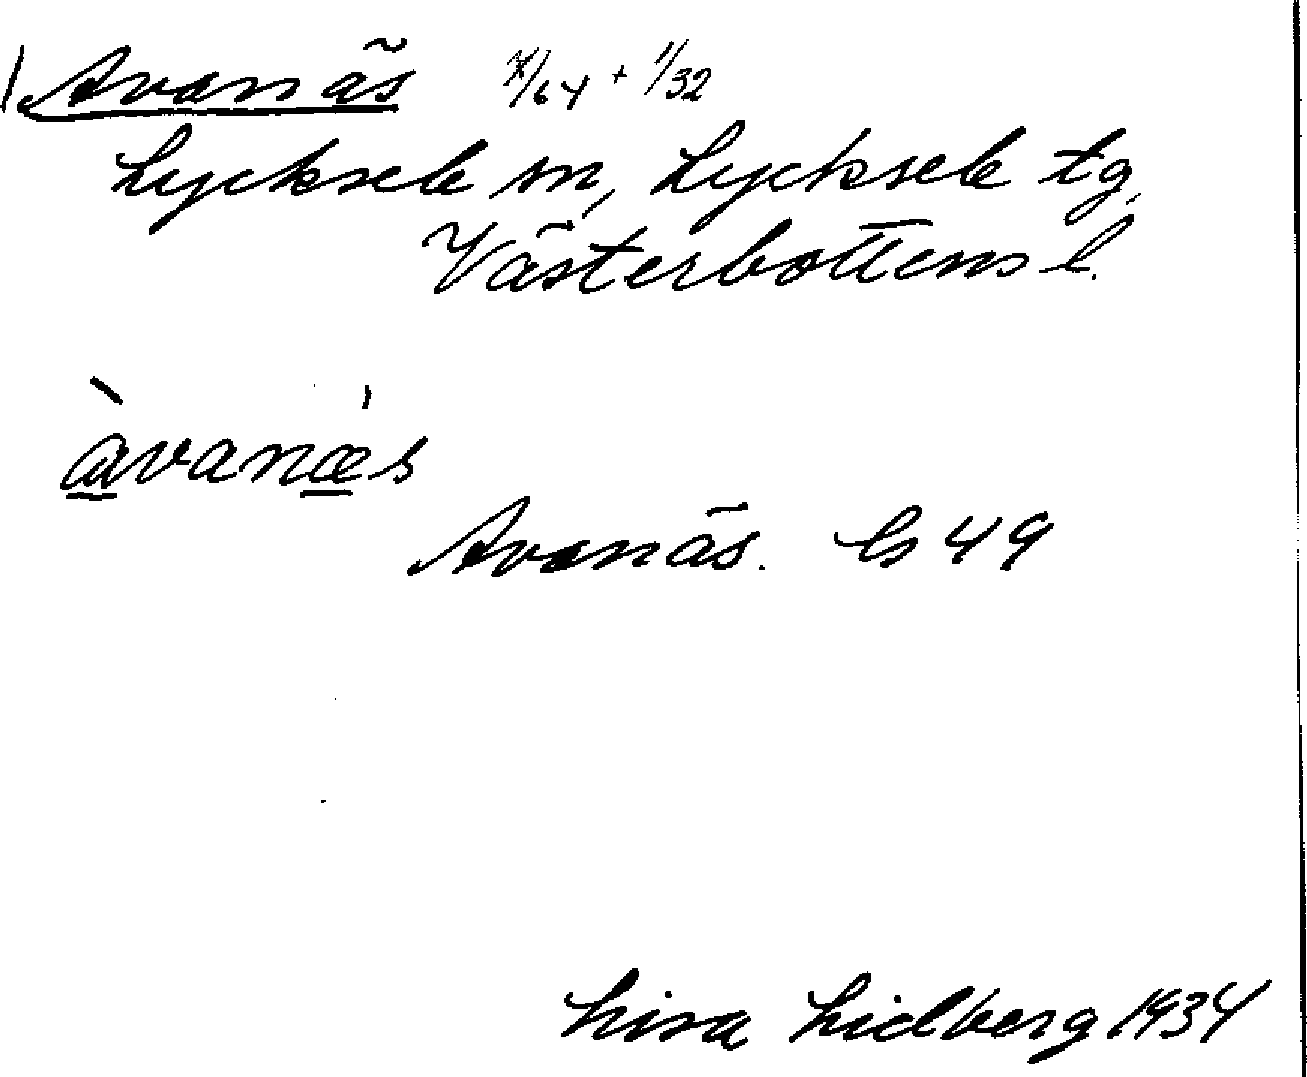 Avanäs 7/64 + 1/32
Lycksele sn, Lycksele tg,
Västerbottens l.
àvanæ's
Avanäs. Gs 49
Lisa Lidberg 1934